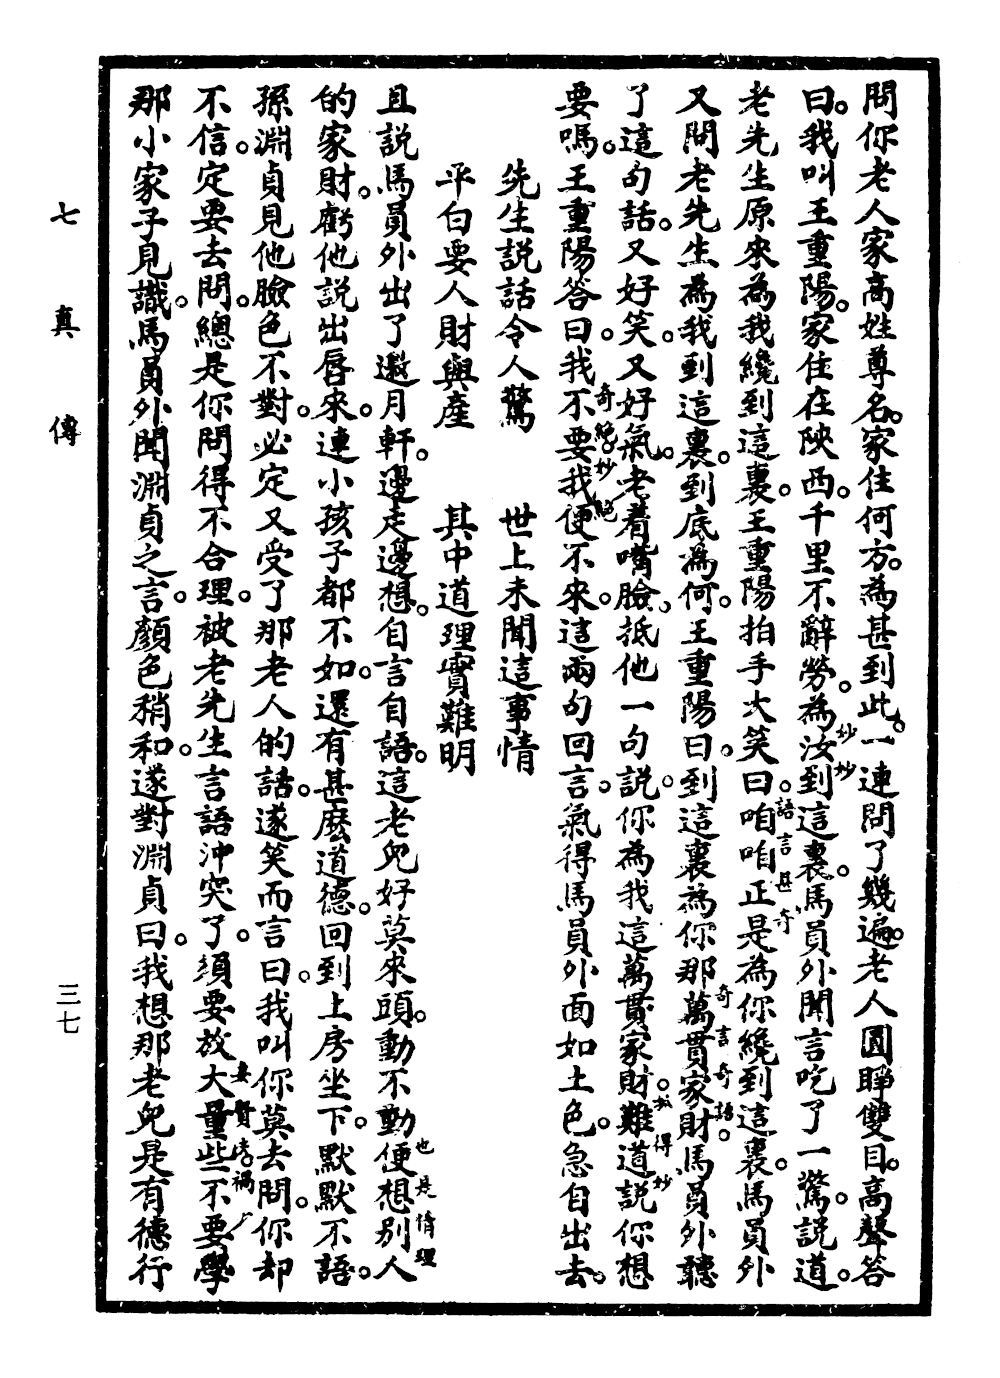 問你老人家高姓尊名。家住何方。為甚到此。一連問了幾遍。老人圓睜雙目。高聲答
曰。我叫王重陽。家住在陝西。千里不辭勞。為汝到這裏。馬員外聞言吃了一驚。説道。
妙妙
老先生原來為我纔到這裏。王重陽拍手大笑曰。咱咱正是為你纔到這裏。馬員外
語言甚奇
又問老先生為我到這裏。到底為何。王重陽曰。到這裏為你那萬貫家財。馬員外聽
奇言奇語
了這句話。又好笑。又好氣。老着嘴臉、抵他一句説。你為我這萬貫家財。難道説你想
得妙
要嗎。王重陽答曰。我不要我便不來。這兩句回言。氣得馬員外面如土色。急自出去。
奇絶妙絶
先生説話令人驚 世上未聞這事情
平白要人財與產 其中道理實難明
且説馬員外出了邀月軒。邊走邊想。自言自語。這老兒好莫來頭。動不動便想別人
也是情理
的家財。虧他説出唇來。連小孩子都不如。還有甚麽道德。回到上房坐下。默默不語。
孫淵貞見他臉色不對。必定又受了那老人的話。遂笑而言曰。我叫你莫去問。你却
不信。定要去問。總是你問得不合理。被老先生言語沖突了。須要放大量些。不要學
妻賢夫禍少
那小家子見識。馬員外聞淵貞之言。顏色稍和。遂對淵貞曰。我想那老兒是有德行
七真傳
三七